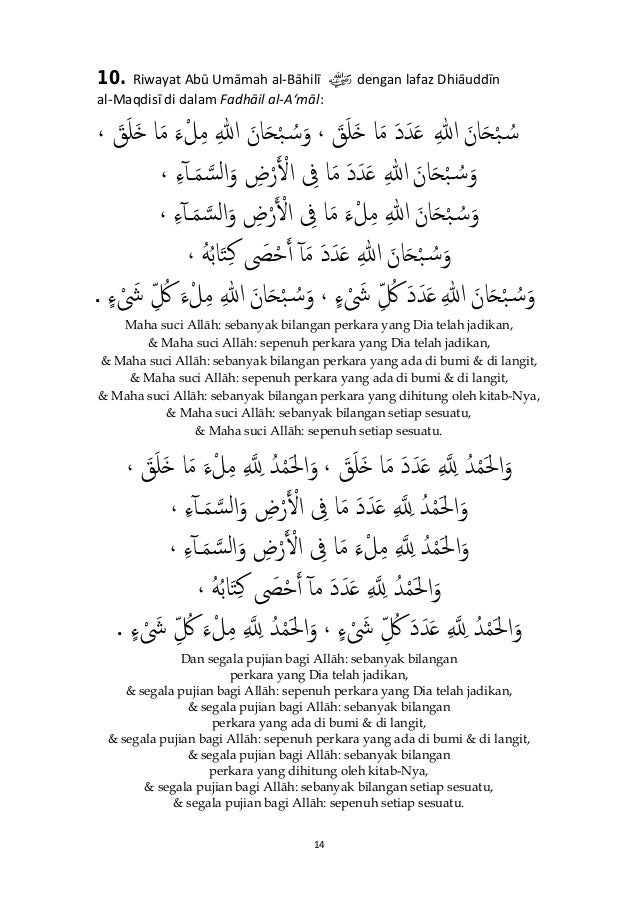 10. Riwayat Abū Umāmah al-Bāhilī ﷺ dengan lafaz Dhiāuddīn
al-Maqdisī di dalam Fadhāil al-A‘māl:
سُبْحَانَ اللهِ عَدَدَ مَا خَلَقَ ، وَسُبْحَانَ اللهِ مِلْءَ مَا خَلَقَ ،
وَسُبْحَانَ اللهِ عَدَدَ مَا فِى الْأَرْضِ وَالسَّمَآءِ ،
وَسُبْحَانَ اللهِ مِلْءَ مَا فِى الْأَرْضِ وَالسَّمَآءِ ،
وَسُبْحَانَ اللهِ عَدَدَ مَآ أَحْصَى كِتَابُهُ ،
وَسُبْحَانَ اللهِ عَدَدَ كُلِّ شَىْءٍ ، وَسُبْحَانَ اللهِ مِلْءَ كُلِّ شَىْءٍ .
Maha suci Allāh: sebanyak bilangan perkara yang Dia telah jadikan,
& Maha suci Allāh: sepenuh perkara yang Dia telah jadikan,
& Maha suci Allāh: sebanyak bilangan perkara yang ada di bumi & di langit,
& Maha suci Allāh: sepenuh perkara yang ada di bumi & di langit,
& Maha suci Allāh: sebanyak bilangan perkara yang dihitung oleh kitab-Nya,
& Maha suci Allāh: sebanyak bilangan setiap sesuatu,
& Maha suci Allāh: sepenuh setiap sesuatu.
وَالْحَمْدُ لِلَّهِ عَدَدَ مَا خَلَقَ ، وَالْحَمْدُ لِلَّهِ مِلْءَ مَا خَلَقَ ،
وَالْحَمْدُ لِلَّهِ عَدَدَ مَا فِى الْأَرْضِ وَالسَّمَآءِ ،
وَالْحَمْدُ لِلَّهِ مِلْءَ مَا فِى الْأَرْضِ وَالسَّمَآءِ ،
وَالْحَمْدُ لِلَّهِ عَدَدَ مآ أَحْصَى كِتَابُهُ ،
وَالْحَمْدُ لِلَّهِ عَدَدَ كُلِّ شَىْءٍ ، وَالْحَمْدُ لِلَّهِ مِلْءَ كُلِّ شَىْءٍ .
Dan segala pujian bagi Allāh: sebanyak bilangan
perkara yang Dia telah jadikan,
& segala pujian bagi Allāh: sepenuh perkara yang Dia telah jadikan,
& segala pujian bagi Allāh: sebanyak bilangan
perkara yang ada di bumi & di langit,
& segala pujian bagi Allāh: sepenuh perkara yang ada di bumi & di langit,
& segala pujian bagi Allāh: sebanyak bilangan
perkara yang dihitung oleh kitab-Nya,
& segala pujian bagi Allāh: sebanyak bilangan setiap sesuatu,
& segala pujian bagi Allāh: sepenuh setiap sesuatu.
14